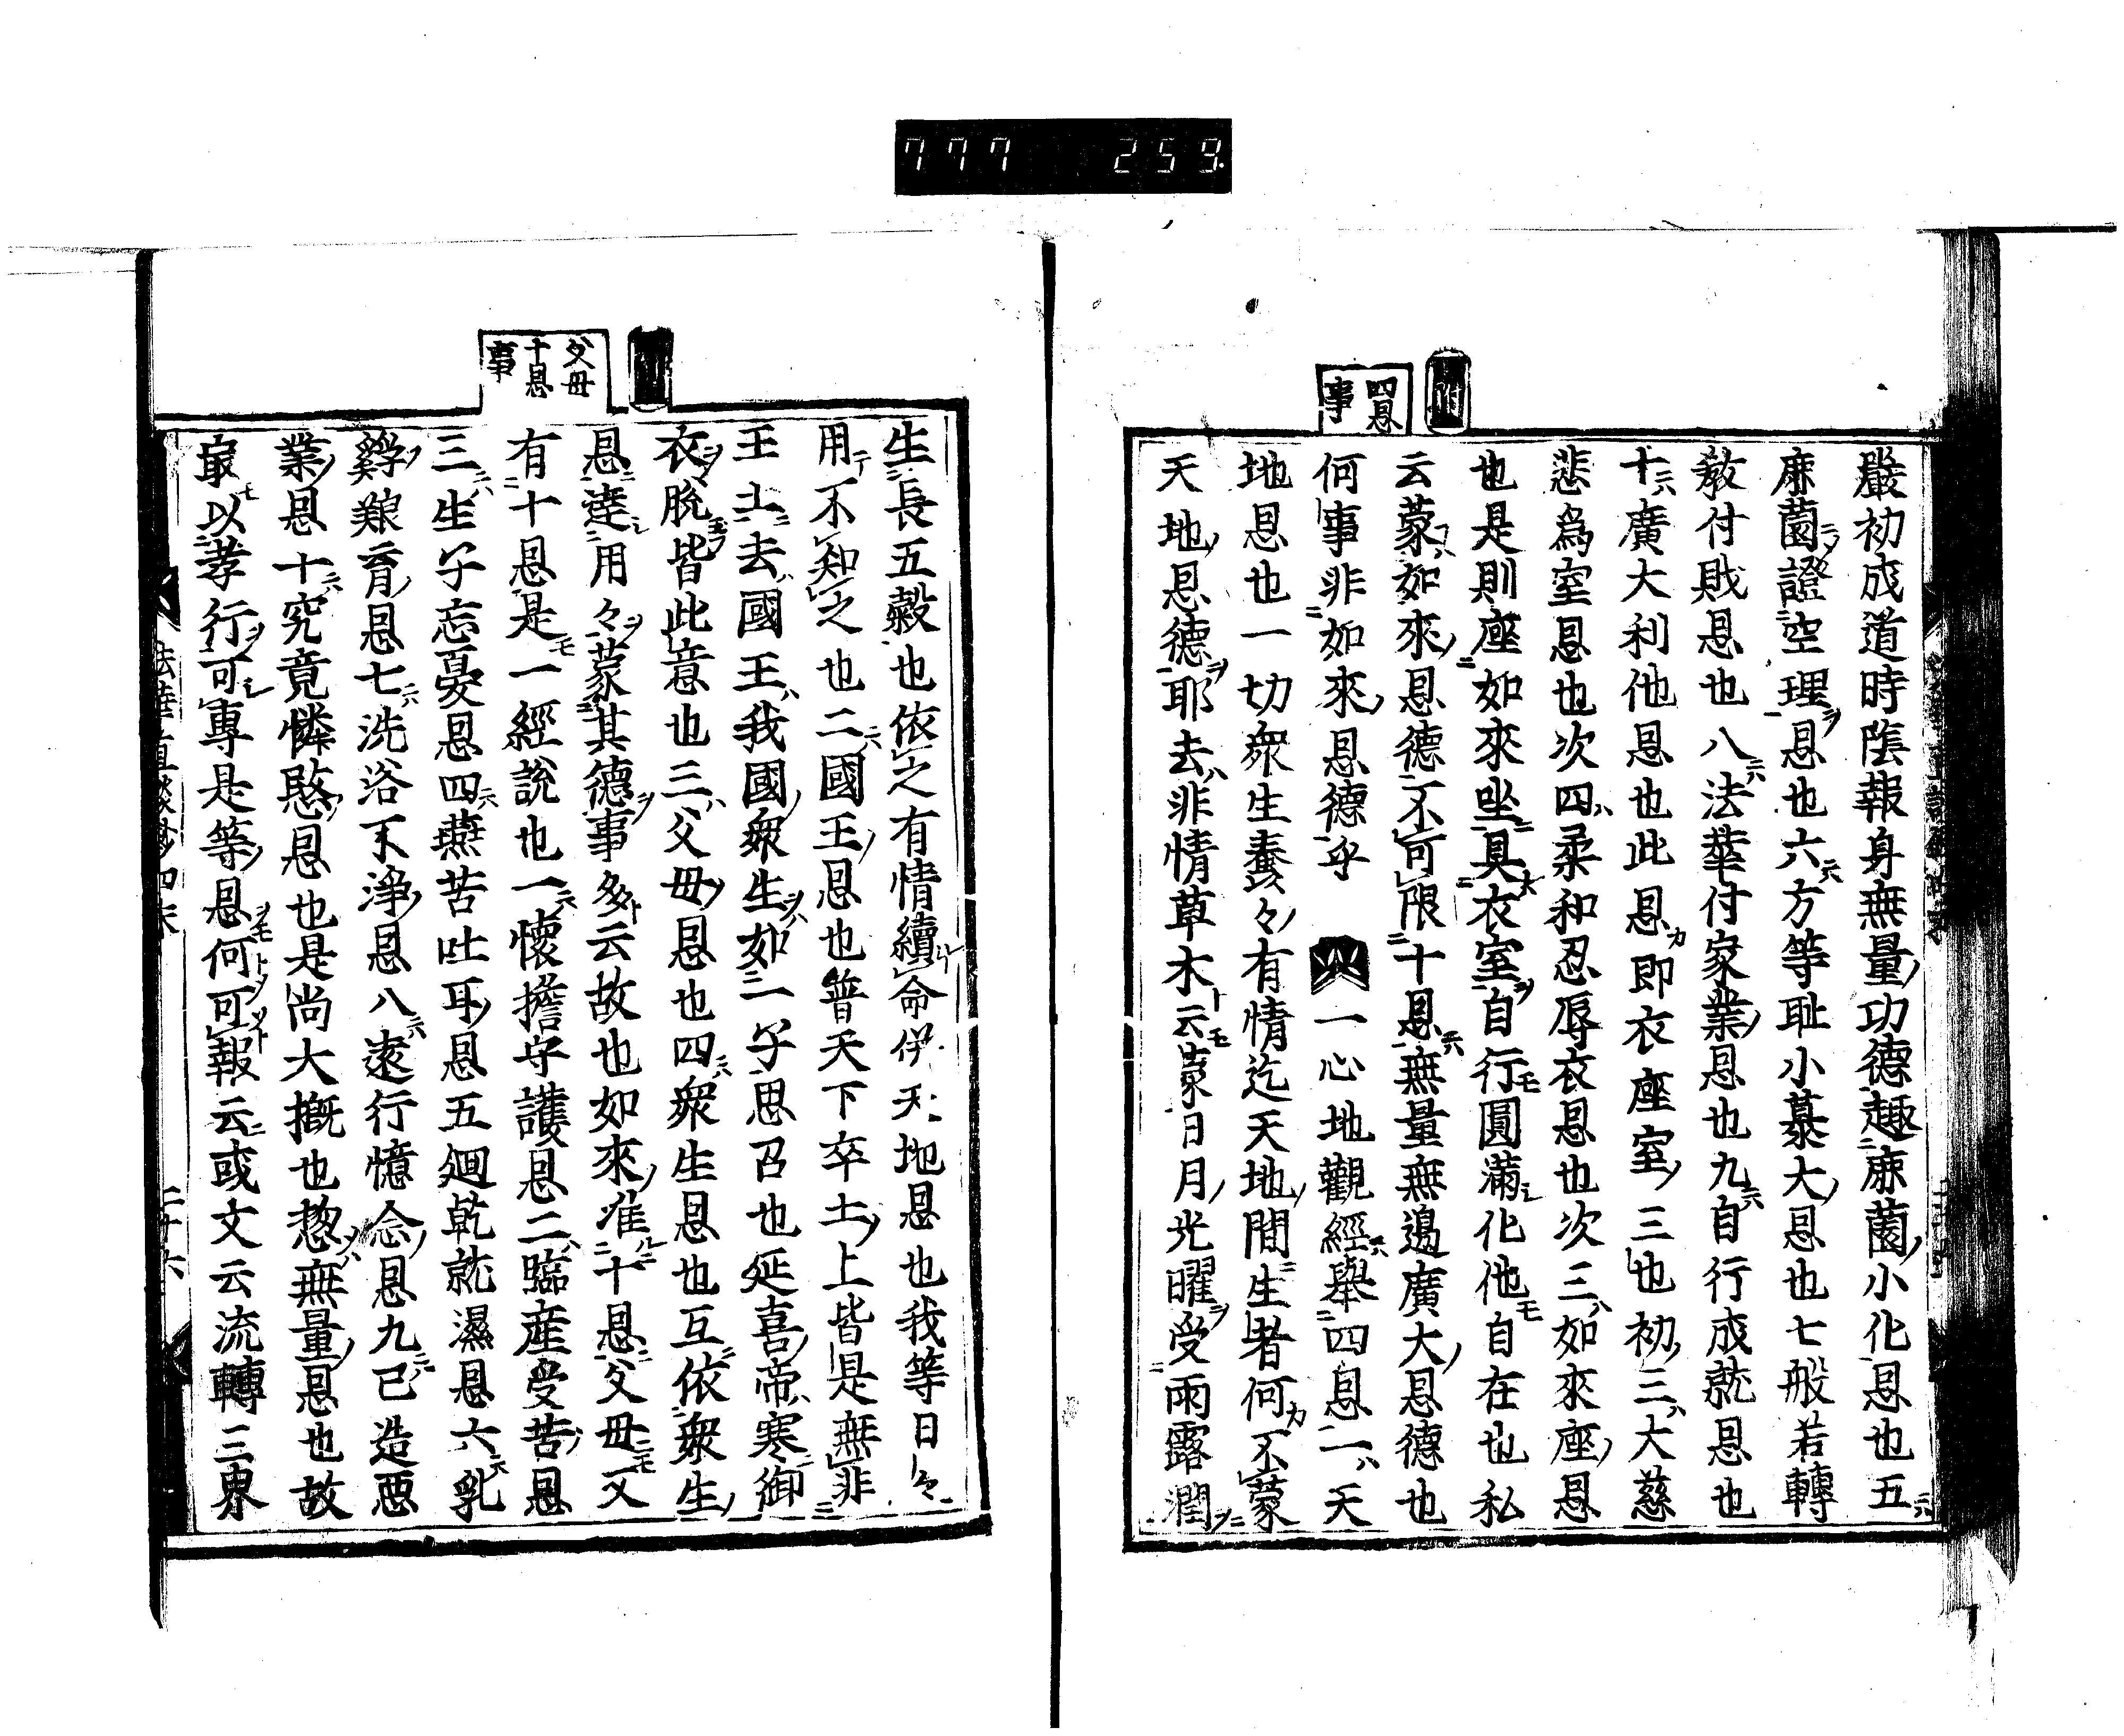 777 259
四恩事
嚴初成道時隂報身無量功德趣麻薗小化恩也五
麻薗證空理恩也六方等耻小慕大恩也七般若轉
教付財恩也八法華付家業恩也九自行成就恩也
十廣大利他恩也此恩即衣座室三也初三大慈
悲爲室恩也次四柔和忍辱衣恩也次三如來座恩
也是則座如來坐具衣室自行圓滿化他自在也私
云蒙如來恩德不可限十恩無量無邊廣大恩德也
何事非如來恩德乎 一心地觀經舉四恩一天
地恩也一切衆生蠢々有情迄天地間生者何不蒙
天地恩德耶去非情草木云蒙日月光曜受雨露潤
父母十恩事
生長五穀也依之有情續命併天地恩也我等日々
用不知之也二國王恩也普天下卒土上皆是無非
王土去國王我國衆生如一子思召也延喜帝寒御
衣脫皆此意也三父母恩也四衆生恩也互依衆生
恩達用々蒙其德事多云故也如來准十恩父母又
有十恩是一經說也一懷擔守護恩二臨産受苦恩
三生子忘憂恩四嚥苦吐耳恩五廻乾就濕恩六乳
養育恩七洗浴不淨恩八遠行憶念恩九已造惡
業恩十究竟憐愍恩也是尚大概也惣無量恩也故
最以孝行可專是等恩何可報云或文云流轉三界
法華直談鈔四末 二十六